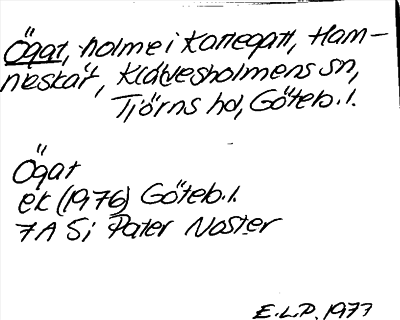 Ögat, holme i Kattegatt, Ham-
neskär, Klädesholmens sn,
Tjörns hd, Göteb. l.
Ögat
ek (1976) Göteb. l.
7A Si Pater Noster
E.L.P. 1977